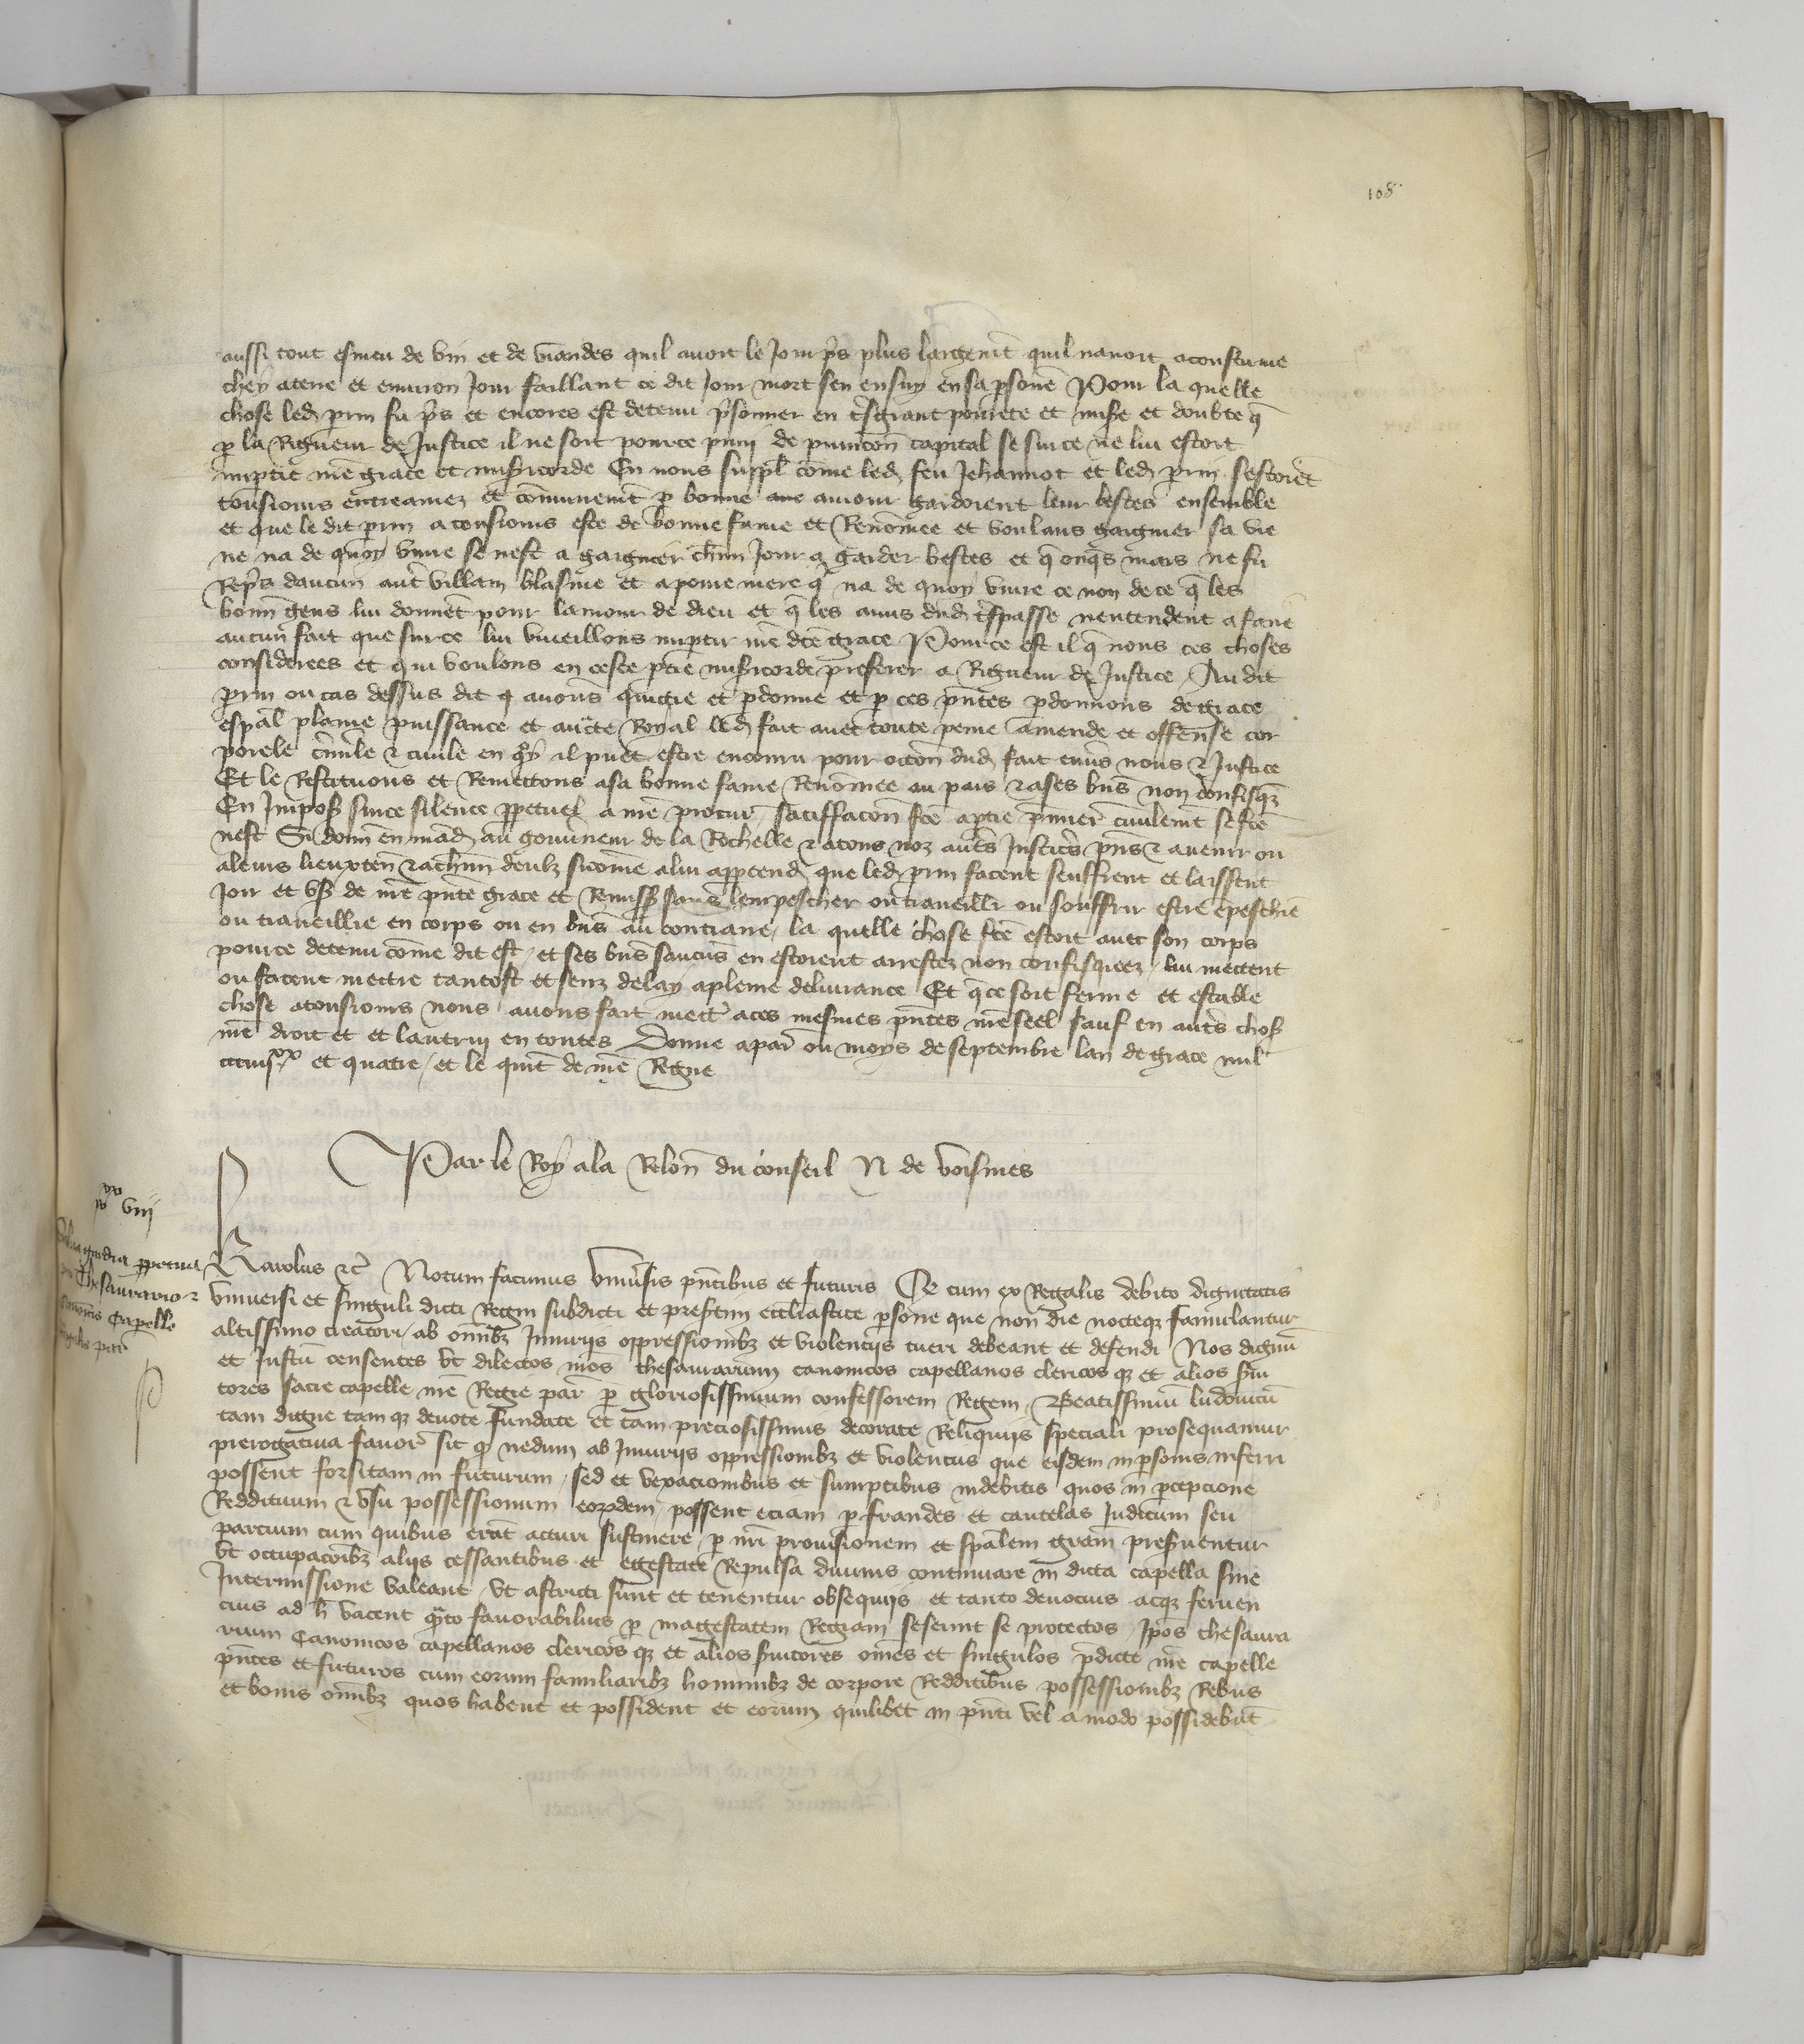 108
aussi tout esmeu de vin et de viandes quil avoit le Jour prs plus largemt quil navoit acoustume
chey a terre et environ Jour faillant ce dit Jour mort sen ensuy en sa psone Pour la quelle
chose led prin fu prs et encores est detenu prsonner en trsgrant povrete et misre et doubte q
p la Rigueur de Justice il ne soit pource puni de punicon capital se sur ce ne lui estoit
imptie nre grace et misricorde En nous suppl come led feu Jehannot et led prin sestoiet
tousiours entreamez et comunemt p bonne amour gardoient leur bestes ensemble
et que le dit prin a tousiours este de bonne fame et Renomee et voulans gaigner sa vie
ne na de quoy vivre se nest a gaigner chun Jour a garder bestes et q onqs mais ne fu
Reprs daucun autr villain blasme et a povre mere q na de quoy vivre ce non de ce q les
bonn gens lui donnet pour lamour de dieu et q les amis dud trspasse nentendent a faire
aucun fait que sur ce lui vueillons imptir nre dce grace Pource est il q nous ces choses
considerees et qui voulons en ceste ptie misricorde preferer a Rigueur de Justice Au dit
prin ou cas dessus dit q avons quictie et pdonne et p ces pntes pdonnons de grace
espal plaine puissance et aucte Royal led fait avec toute peine amende et offense cor
porele criminle et civile en qoy il puet estre encouru pour occon dud fait envrs nous et Justice
Et le Restituons et Remettons a sa bonne fame Renomee au pais et a ses bns non confisqz
En Impos sur ce silence ppetuel a nre procur satiffacon fce a ptie primier civilemt se fce
nest Si donn en mand au gouvrneur de la Rochelle et a tous noz autrs Justicrs pns et avenir ou
a leurs lieuxten et a chun deulz sicome a lui apptend que led prin facent seuffrent et laissent
Joir et us de nre pnte grace et Remiss sans lempescher ou travaillr ou souffrir estre epeschie
ou travaillie en corps ou en bns au contraire la quelle chose fce estoit avec son corps
pource detenu come dit est et ses bns saucuns en estoient arrestez non confisqueez lui mettent
ou facent mettre tantost et senz delay a pleine delivrance Et q ce soit ferme et estable
chose a tousiours nous avons fait mettr a ces mesmes pntes nre seel sauf en autrs chos
nre droit et et lautruy en toutes Donne a par ou moys de septembre lan de grace mil
ccciiijxx et quatre et le quint de nre Regne
Par le Roy a la Relon du conseil N de voisines
iiijxx viij
Salva gardia ppetua
pro Thesaurario et
canonicis Capelle
Regalis paris
Karolus etc Notum facimus Univrsis pntibus et futuris Qe cum ex Regalis debito dignitatis
Universi et singuli dicti Regni subdicti et presrtim eccliastice psone que non die nocteqz famulantur
altissimo creatori ab omibz Iniuriis oppressionibz et violentiis tueri debeant et defendi Nos dignu
et Justu censentes ut dilectos nros thesaurarium canonicos capellanos clericos qz et alios srvi
tores sacre capelle nre Regie par p gloriosissimum confessorem Regem Beatissimu ludovicu
tam digne tam qz devote fundate et tam preciosissimis decorate Reliquiis speciali prosequamur
prerogativa favor sit q nedum ab Iniuriis oppressionibz et violentiis que eisdem in psonis inferri
possent forsitam in futurum sed et vexacionibus et sumptibus indebitis quos in pcepcione
Reddituum et usu possessionum eorumdem possent eciam p fraudes et cautelas Judicum seu
parcium cum quibus erut acturi sustinere p nri provisionem et spalem gram presrventur
ut occupacoibz aliis cessantibus et egestate Repulsa divinis continuare in dicta capella sine
Intermissione valeant ut astricti sunt et tenentur obsequiis et tanto devocius acqz ferven
cius ad h vacent qto favorabilius p magestatem Regiam sesernt se protectos Ipos thesaura
rium Canonicos capellanos clericos qz et alios srvitores omes et singulos pdicte nre capelle
pntes et futuros cum eorum familiaribz hominibz de corpore Redditibus possessionibz Rebus
et bonis omibz quos habent et possident et eorum quilibet in pnti vel amodo possidebut